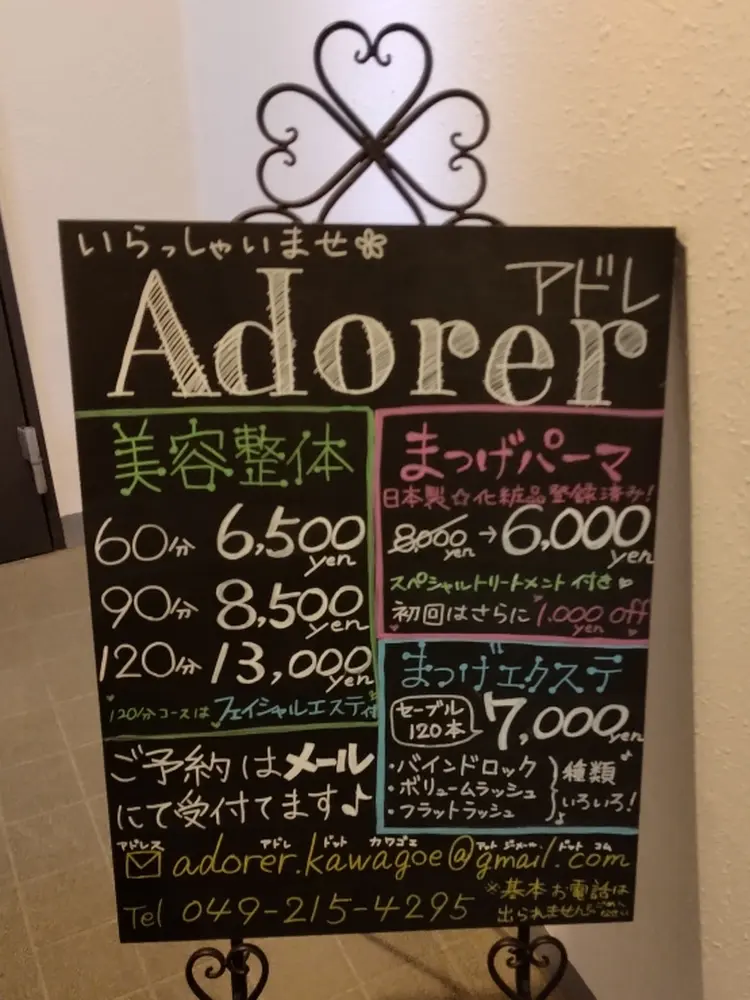 いらっしゃいませ
アドレ
Adorer
美容整体
60分 6,500yen
90分 8,500yen
120分 13,000yen
120分コースはフェイシャルエステ付
まつげパーマ
日本製☆化粧品登録済み!
8,000yen→6,000yen
スペシャルトリートメント付き
初回はさらに1,000yen off
まつげエクステ
セーブル
120本
7,000yen
・バインドロック
・ボリュームラッシュ
・フラットラッシュ
種類
いろいろ!
ご予約はメール
にて受付てます♪
アドレス アドレ ドット カワゴエ アットジーメール.ドット コム
adorer.kawagoe@gmail.com
Tel 049-215-4295
※基本お電話は
出られません